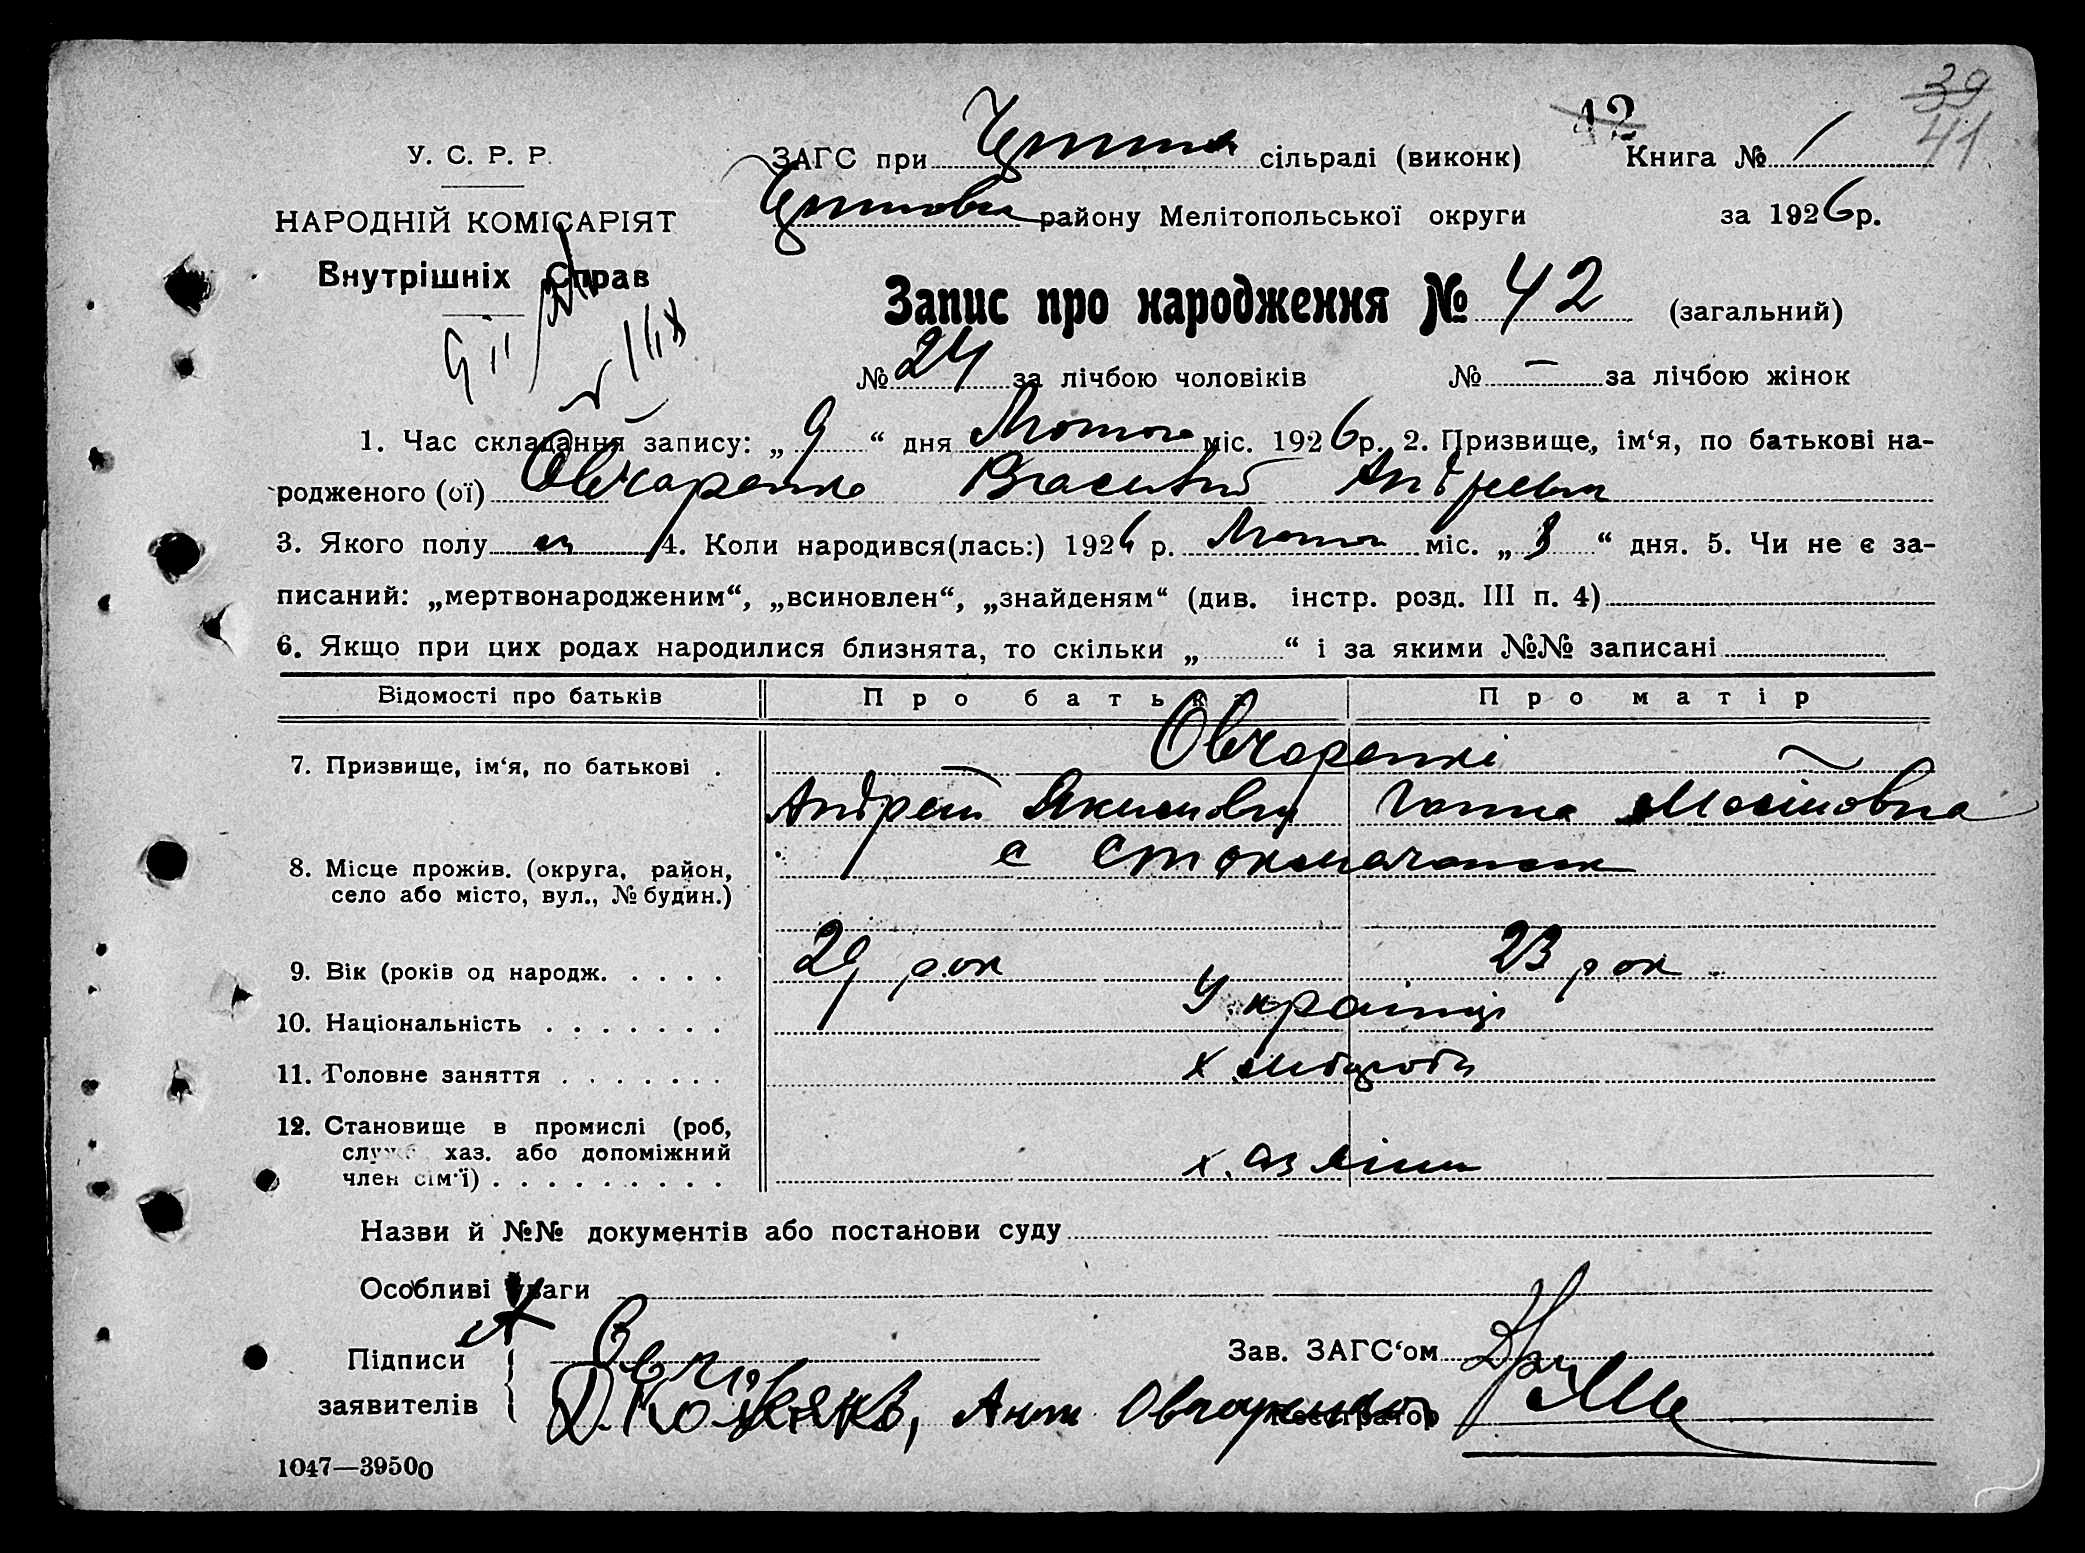 39
41
42
У. С. Р. Р.
ЗАГС при сільраді (виконк) Книга № 1
НАРОДНІЙ КОМІСАРІЯТ
району Мелітопольської округи за 1926 р.
Внутрішніх Справ
Запис про народження № 42 (загальний)
№ 24 за лічбою чоловіків № — за лічбою жінок
1. Час складання запису: „ 9 “ дня Лютого міс. 1926 р. 2. Призвище, ім‘я, по батькові на-
родженого (ої) Овчаренко Василій Андреевич
3. Якого полу 4. Коли народився(лась:) 1926 р. міс. „ “ дня. 5. Чи не є за-
писаний: „мертвонародженим“, „всиновлен“, „знайденям“ (див. інстр. розд. III п. 4)
6. Якщо при цих родах народилися близнята, то скільки „ “ і за якими №№ записані
Відомості про батьків Про батька Про матір
7. Призвище, ім‘я, по батькові . Овчаренкі
Андрей Якимович Ганна
8. Місце прожив. (округа, район, с
село або місто, вул., № будин.)
9. Вік (років од народж. . . . . 29 рок 23 рок
10. Національність . . . . . . . Українці
11. Головне заняття . . . . . . . хлібороби
12. Становище в промислі (роб,
служб хаз. або допоміжний
член сім‘ї) . . . . . . . . .
Назви й №№ документів або постанови суду
Особливі уваги
Підписи Зав. ЗАГС‘ом
заявителів Овчаренко Реєстратор
1047—39500